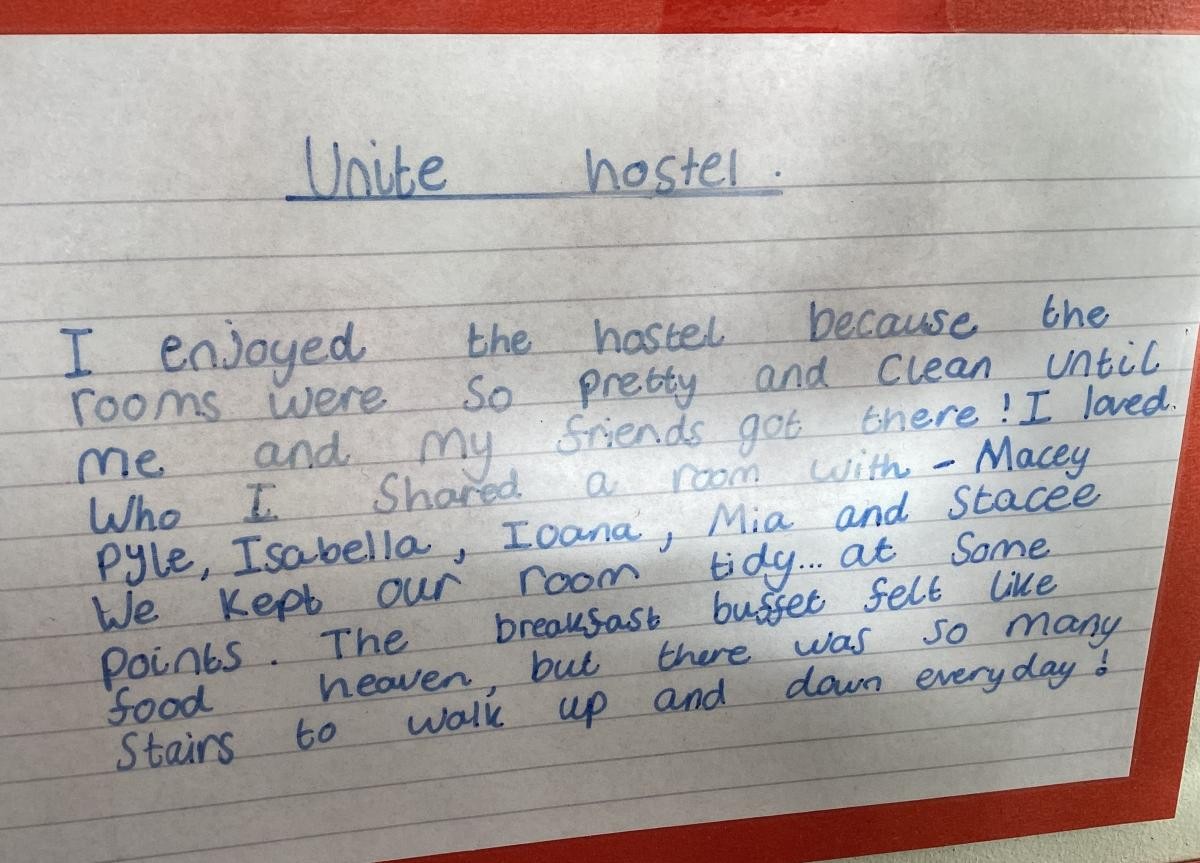 Unite hostel.
I enjoyed the hostel because the
rooms were so pretty and clean until
me and my friends got there! I loved
Who I shared a room with - Macey
Pyle, Isabella, Ioana, Mia and Stacee
We kept our room tidy... at some
points. The breakfast buffet felt like
food heaven, but there was so many
stairs to walk up and down everyday!